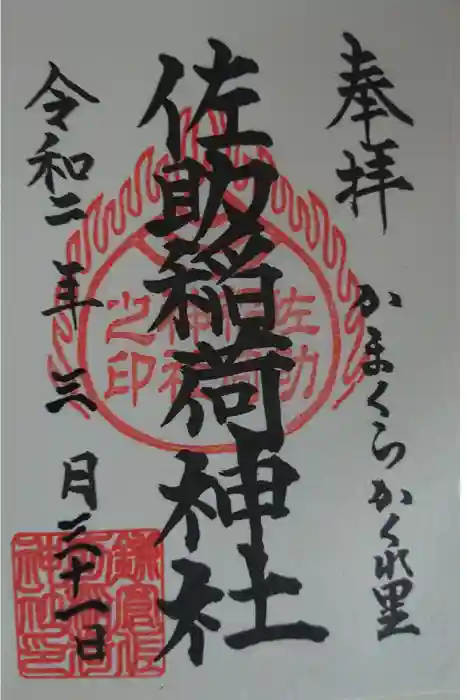 奉拝
かまくらかくれ里
佐助稲荷神社
令和二年三月三十一日
佐助稲荷神社之印